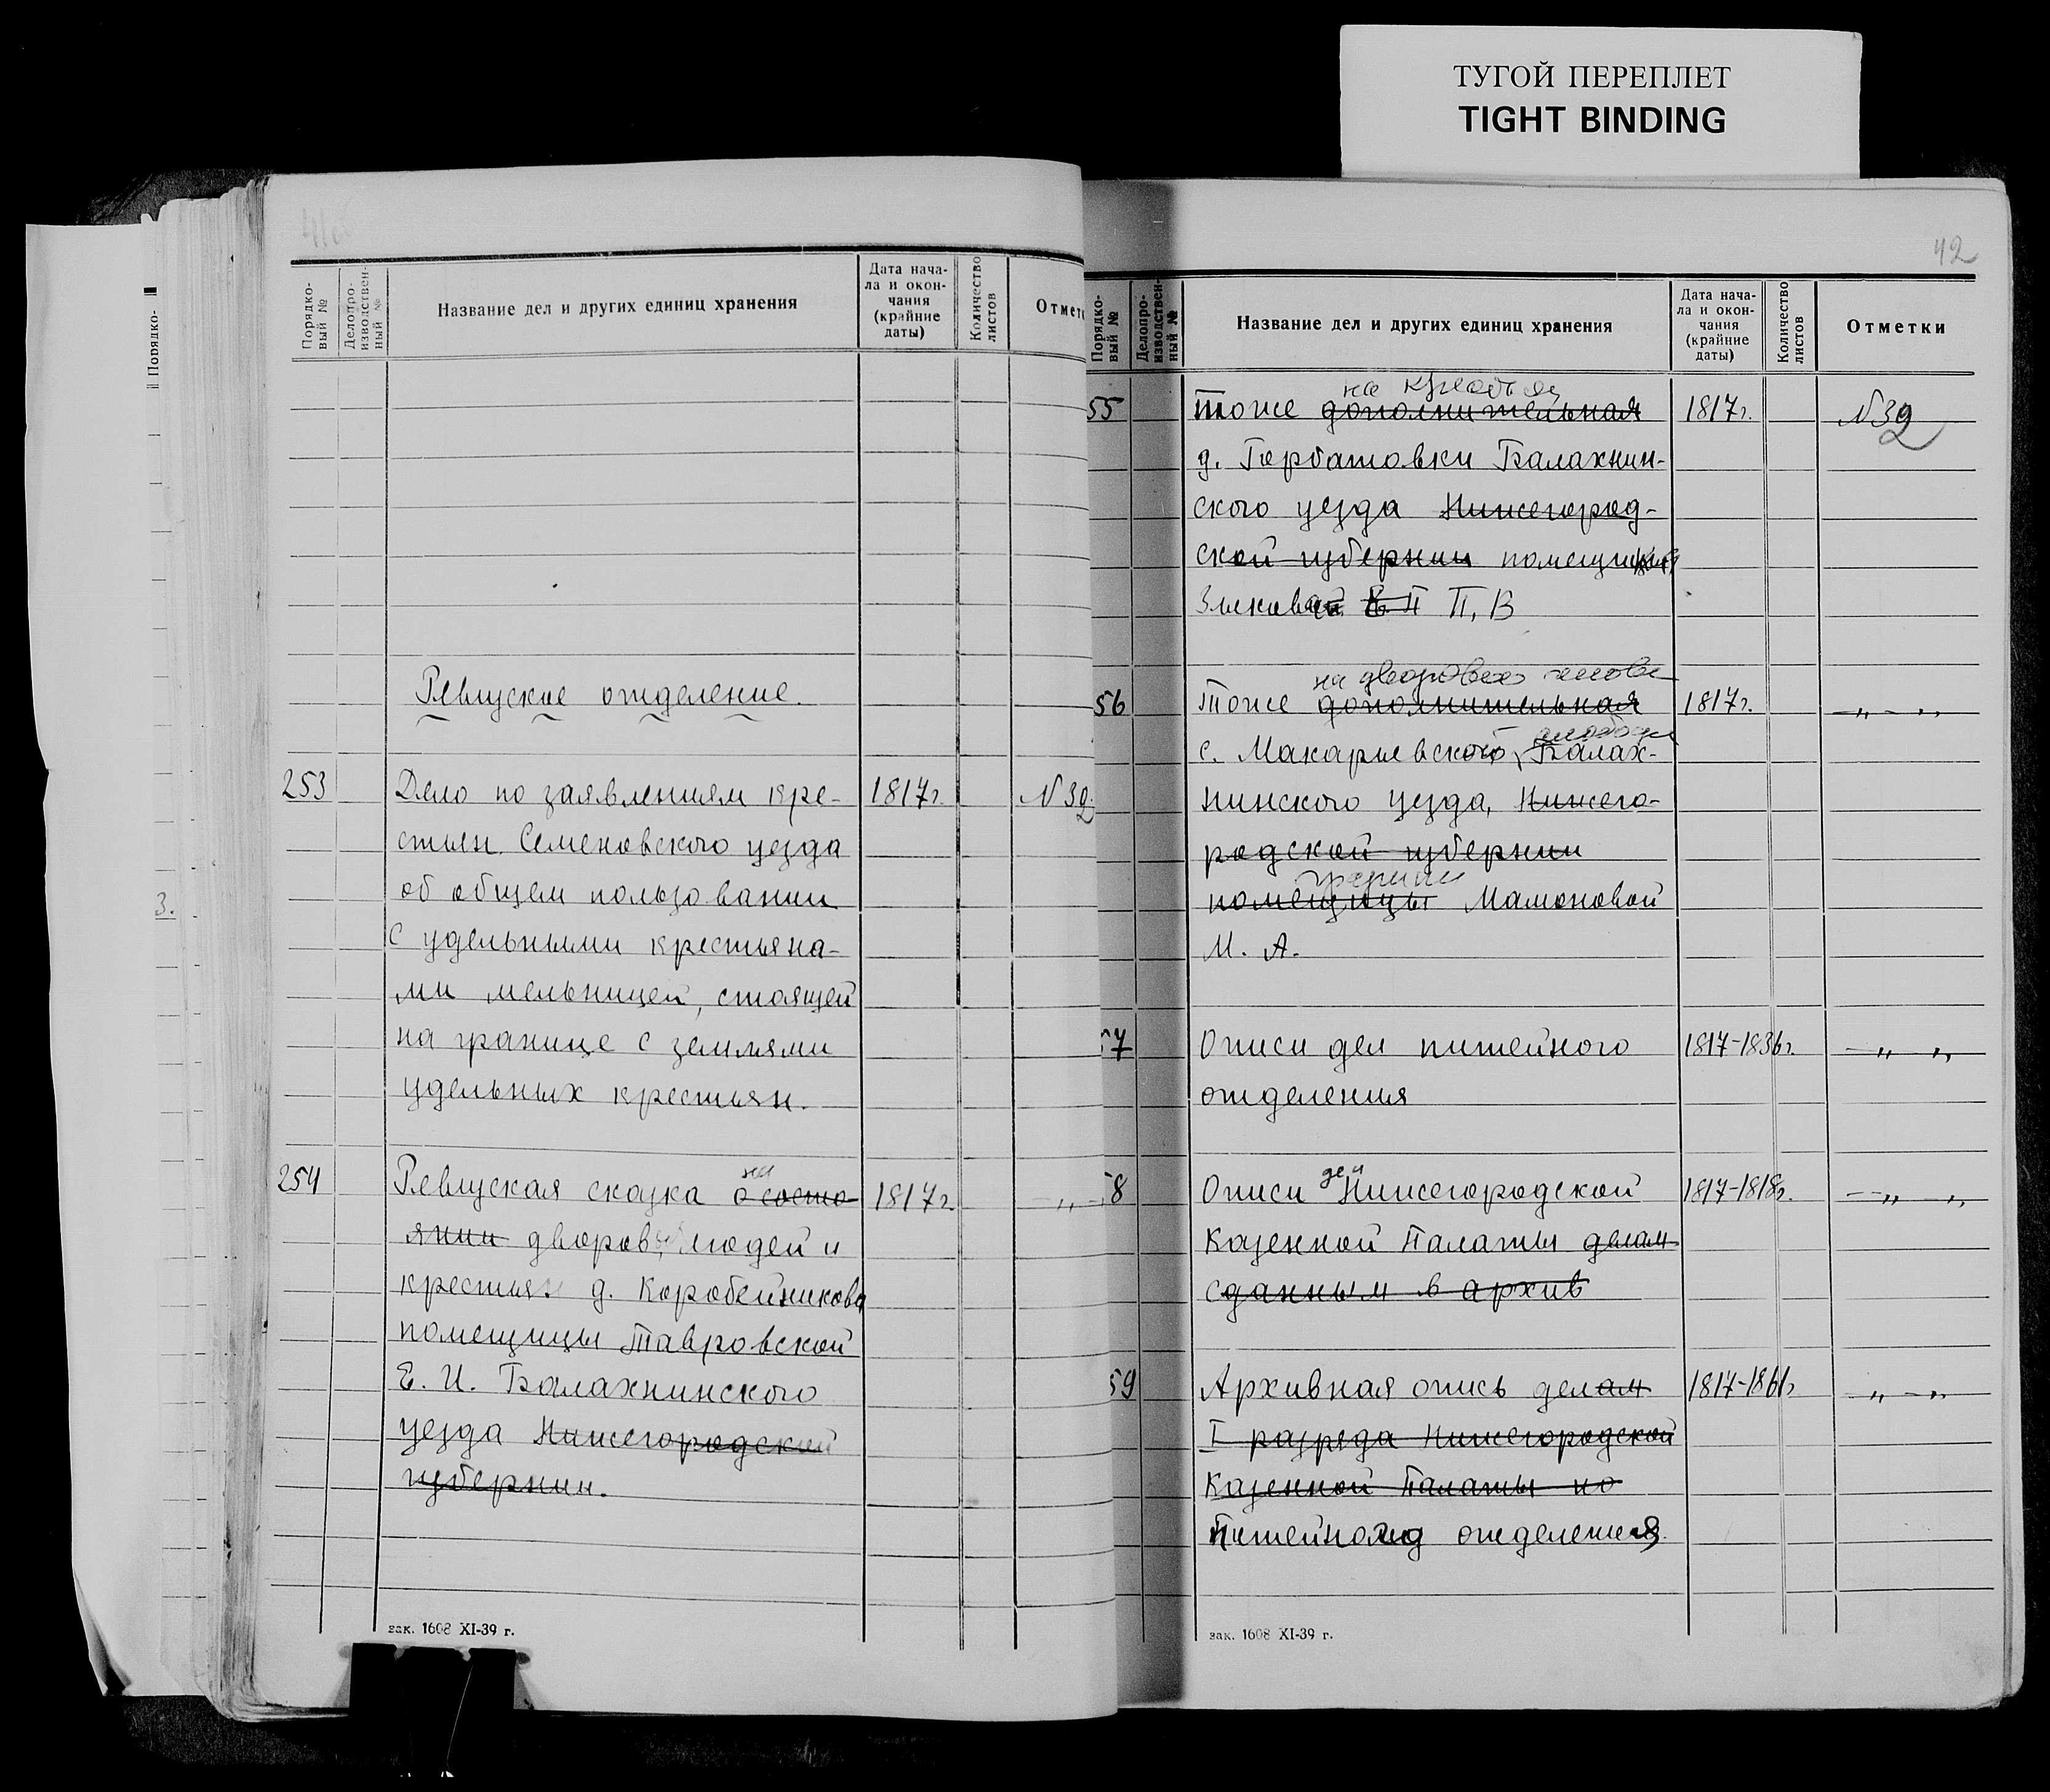 ТУГОЙ ПЕРЕПЛЕТ
TIGHT BINDING
Порядко-
Порядко-
вый №
Делопро-
изводствен-
ный №
Название дел и других единиц хранения
Дата нача-
ла и окон-
чания
(крайние
даты)
Количество
листов
Отмет
3.
Ревизские отделение.
253 Дело по заявлениям кре- 1817г. N 39.
стьян Семеновского уезда
об общем пользовании
с удельными крестьяна-
ми мельницей, стоящей
на границе с землями
удельных крестьян.
на
254 Ревизская сказка о состо- 1817г. — „
янии дворов людей и
крестьян д. Коробейникова
помещицы Тавровской
Е. И. Балахнинского
уезда Нижегородской
губернии.
зак. 1608 XI-39 г.
42
Порядко-
вый №
Делопро-
изводствен-
ный №
Название дел и других единиц хранения
Дата нача-
ла и окон-
чания
(крайние
даты)
Количество
листов
Отметки
на крестьян
55 Тоже дополнительная 1817г. N 39
д. Горбатовки Балахнин-
ского уезда Нижегород-
ской губернии
П. В
на дворовых
56 Тоже дополнительная 1817г. — „ — „
слободы
с. Макарьевского, Балах-
нинского уезда, Нижего-
родской губернии
графини
помещицы Мамоновой
М. А.
57 Описи дел питейного 1817-1836г. — „ „
отделения
дел
58 Описи Нижегородской 1817-1818г. — „ „
Казенной Палаты делам
сданным в архив
59 Архивная опись делам 1817-1861г — „ — „
I разряда Нижегородской
Казенной Палаты по
Питейного отделения
зак. 1608 XI-39 г.